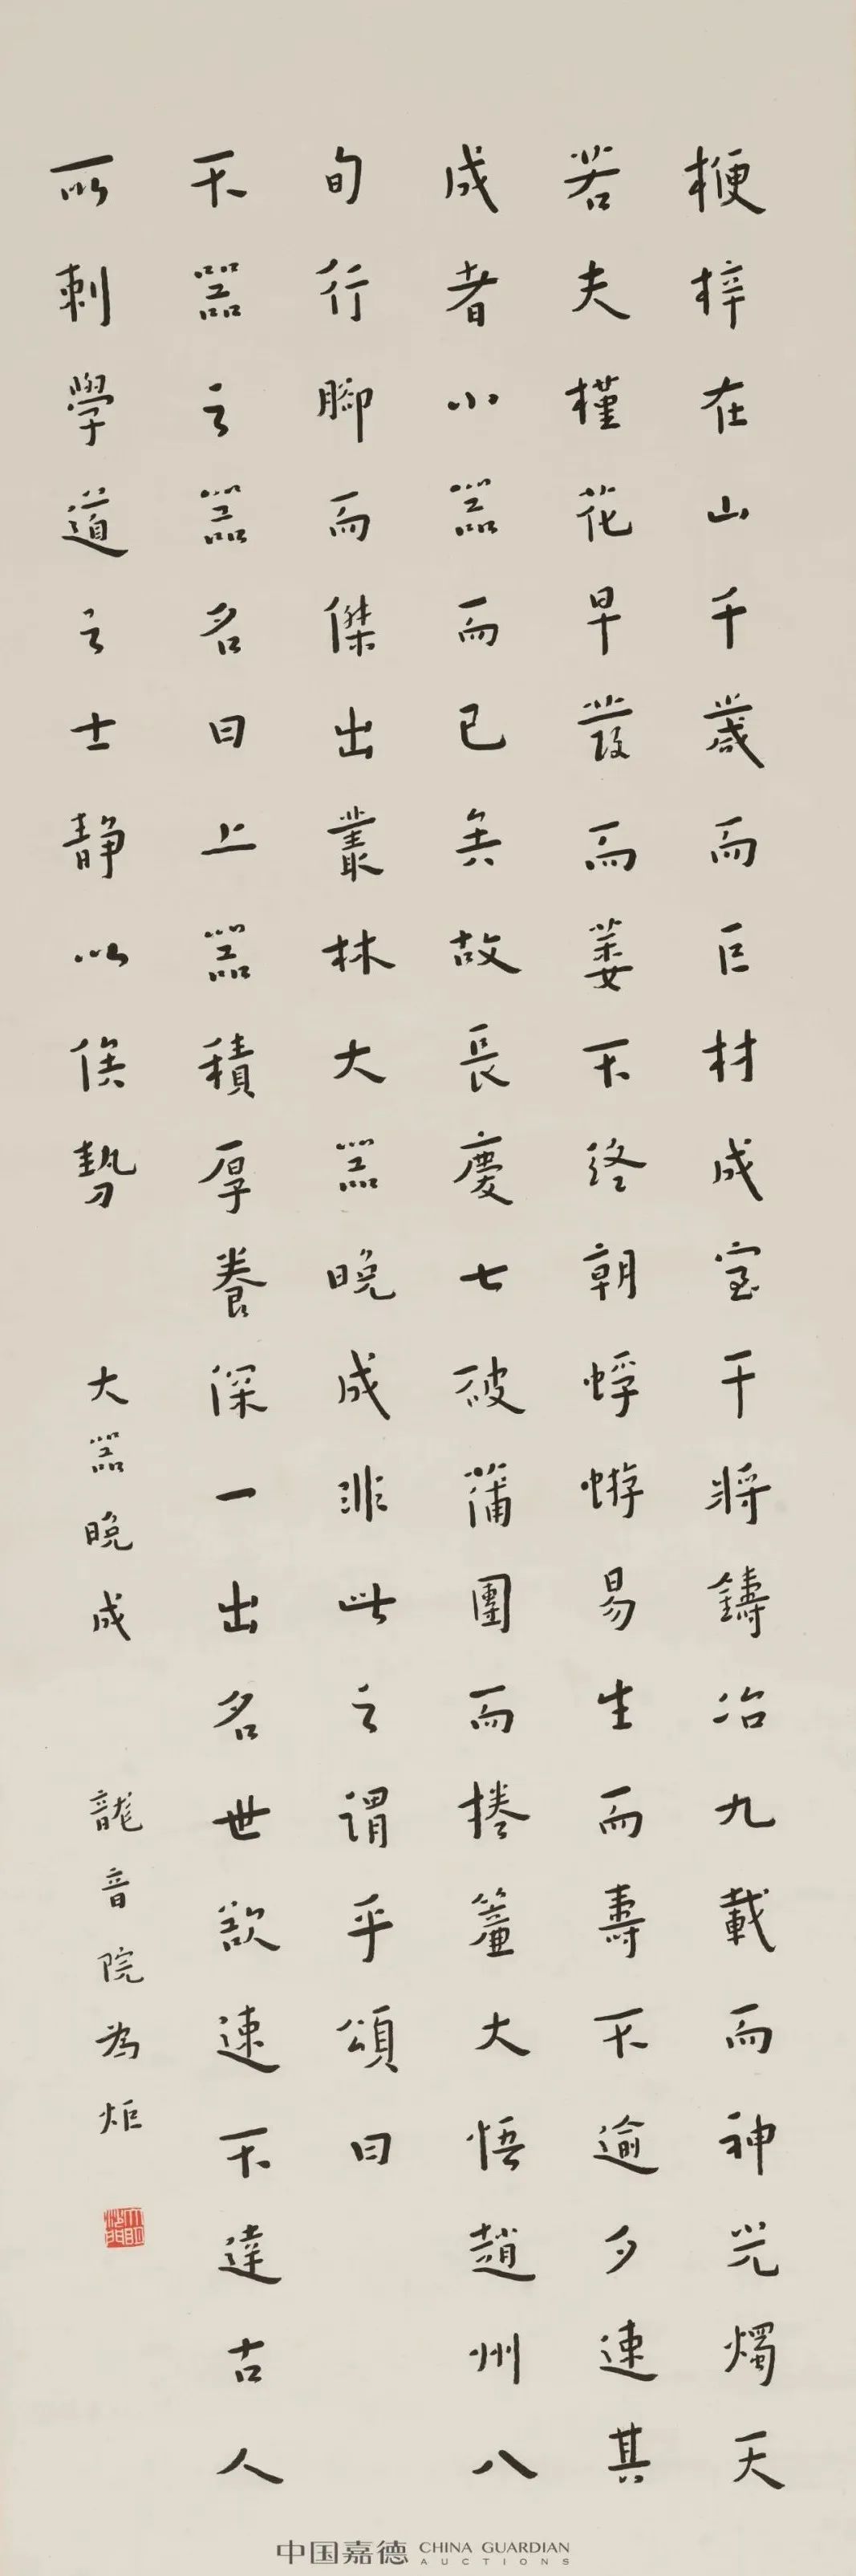 楩梓在山千歲而巨材成室干將鑄冶九載而神光燭天
若夫槿花早發而萎不終朝蜉蝣易生而壽不逾夕速其
成者小器而已矣故長慶七破蒲團而捲簾大悟趙州八
旬行腳而傑出叢林大器晚成非此之謂乎頌曰
不器之器名曰上器積厚養深一出名世欲速不達古人
所刺學道之士靜以俟勢
大器晚成
龍音院為炬
中国嘉德 CHINA GUARDIAN
AUCTIONS